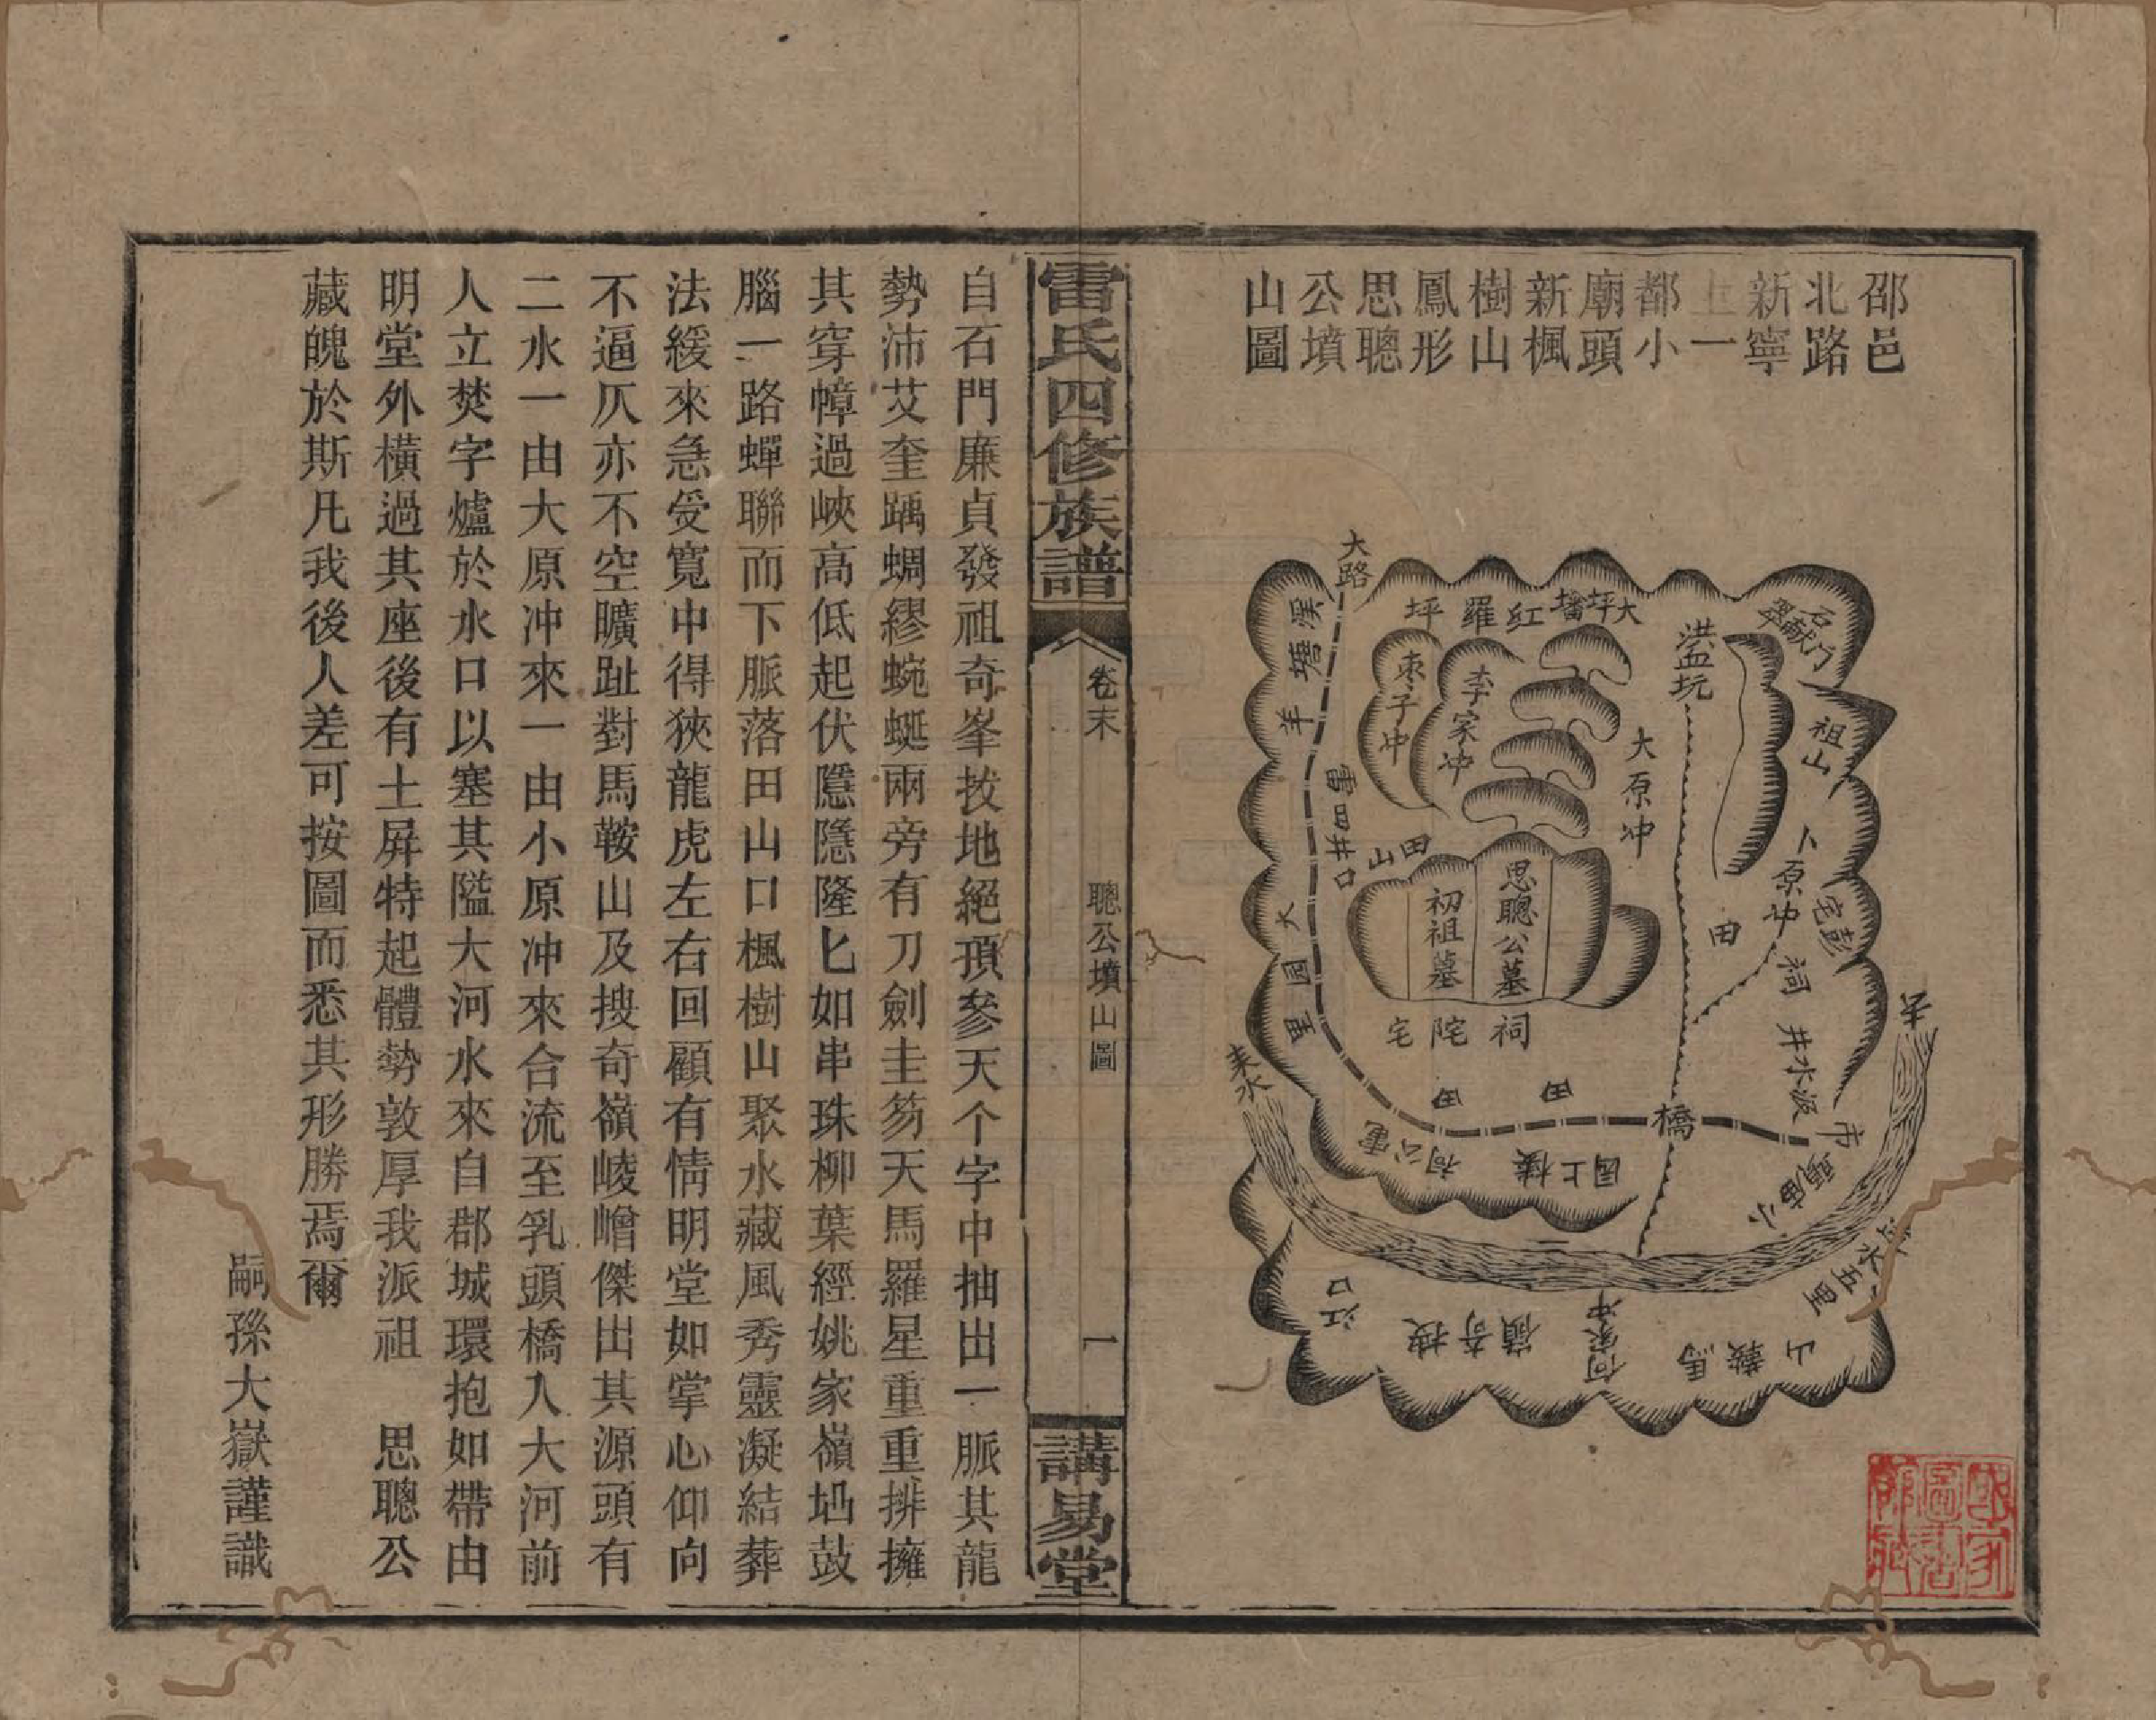 邵邑
北路
新寧
上一
都小
廟頭
新楓
樹山
鳳形
思聰
公墳
山圖
大路
溪塘羊
大坪墦
紅羅坪
洪益坑
石門
献翠
祖山
棗子冲
李家冲
大原冲
雷四井口
田山
思聰公墓
初祖墓
田
卜原冲
彭宅
祠
井水圾
大園里
祠陀宅
田
田
來水
去
橋
市
園上樓
何公電
江口
搜奇嶺
何家冲
馬鞍山
五里
雷氏四修族譜
卷末
聰公墳山圖
一
講易堂
自石門廉貞發祖奇峯拔地絕頂參天个字中抽出一脈其龍
勢沛艾奎踽蜩繆蜿蜒兩旁有刀劍圭笏天馬羅星重重排擁
其穿幛過峽高低起伏隱隱隆匕如串珠柳葉經姚家嶺坬鼓
腦一路蟬聯而下脈落田山口楓樹山聚水藏風秀靈凝結葬
法緩來急受寬中得狹龍虎左右回顧有情明堂如掌心仰向
不逼仄亦不空曠趾對馬鞍山及搜奇嶺崚嶒傑出其源頭有
二水一由大原冲來一由小原冲來合流至乳頭橋入大河前
人立焚字爐於水口以塞其隘大河水來自郡城環抱如帶由
明堂外橫過其座後有土屛特起體勢敦厚我派祖　思聰公
藏魄於斯凡我後人差可按圖而悉其形勝焉爾
嗣孫大嶽謹識